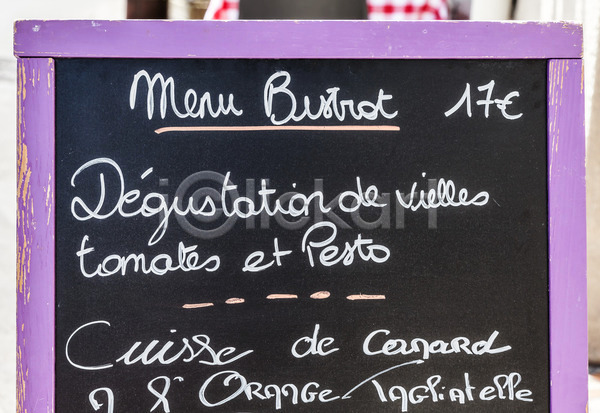 Menu Bistrot 17€
Dégustation de vielles
tomates et Pesto
Cuisse de Canard
ORANGE - TAGLIATELLE